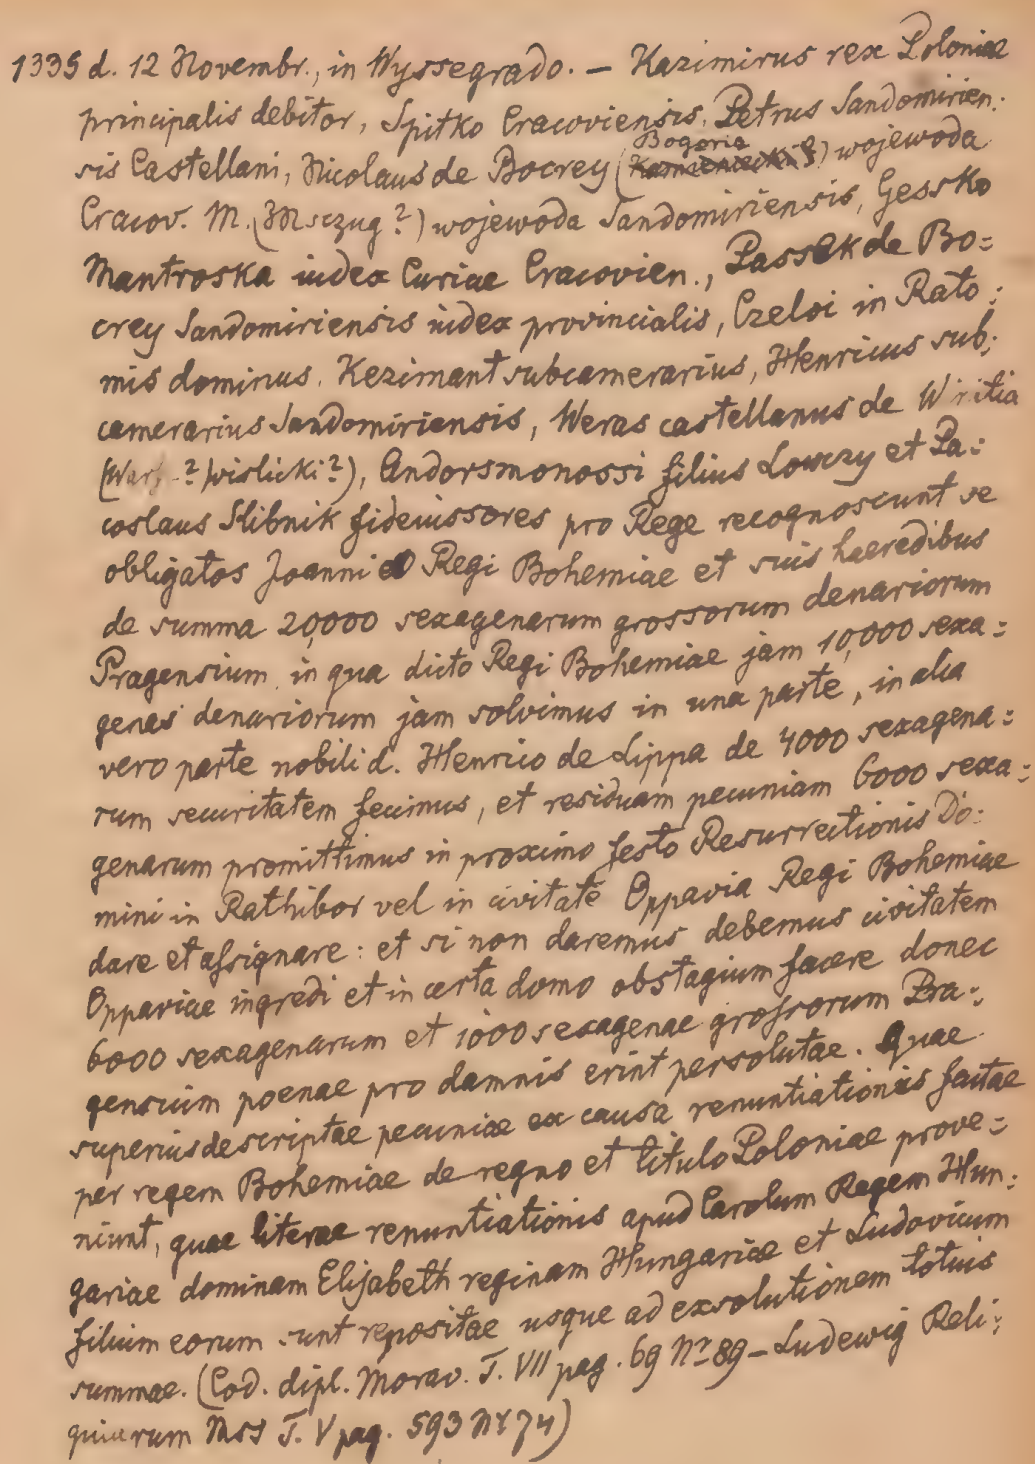 1335 d. 12 Novembr., in Wyssegrado. — Kazimirus rex Poloniae
principalis debitor, Spitko Cracoviensis, Petrus Sandomirien:
sis Castellani, Nicolaus de Bocrey (Bogoria) wojewoda
Cracov. M. (Mszug?) wojewoda Sandomiriensis, Gessko
Mantroska iudex Curiae Cracovien., Passek de Bo=
crey Sandomiriensis iudex provincialis, Czeloi in Rato:
mis dominus. Kezimant subcamerarius, Henricus sub:
camerarius Sandomiriensis, Weras castellanus de Wiritia
(? wislicki?), Andorsmonossi filius Lowczy et Pa:
coslaus Slibnik fideiussores pro Rege recognoscunt se
obligatos Joanni Regi Bohemiae et suis haeredibus
de summa 20,000 sexagenarum grossorum denariorum
Pragensium, in qua dicto Regi Bohemiae jam 10,000 sexa=
genas denariorum jam solvimus in una parte, in alia
vero parte nobili d. Henrico de Lippa de 4000 sexagena=
rum securitatem fecimus, et residuam pecuniam 6000 sexa=
genarum promittimus in proximo festo Resurrectionis Do:
mini in Rathibor vel in civitate Oppavia Regi Bohemiae
dare et assignare: et si non daremus debemus civitatem
Oppaviae ingredi et in certa domo obstagium facere donec
6000 sexagenarum et 1000 sexagenae grossorum Pra:
gensium poenae pro damnis erint persolutae. Quae
superius descriptae pecuniae ex causa renuntiationis factae
per regem Bohemiae de regno et titulo Poloniae prove=
niunt, quae literae renuntiationis apud Carolum Regem Hun:
gariae dominam Elisabeth reginam Hungariae et Ludovicum
filium eorum sunt repositae usque ad exsolutionem totius
summae. (Cod. dipl. Morav. T. VII pag. 69 Nr 89 — Ludewig Reli:
quiarum Mss T. V pag. 593 Nr 74)